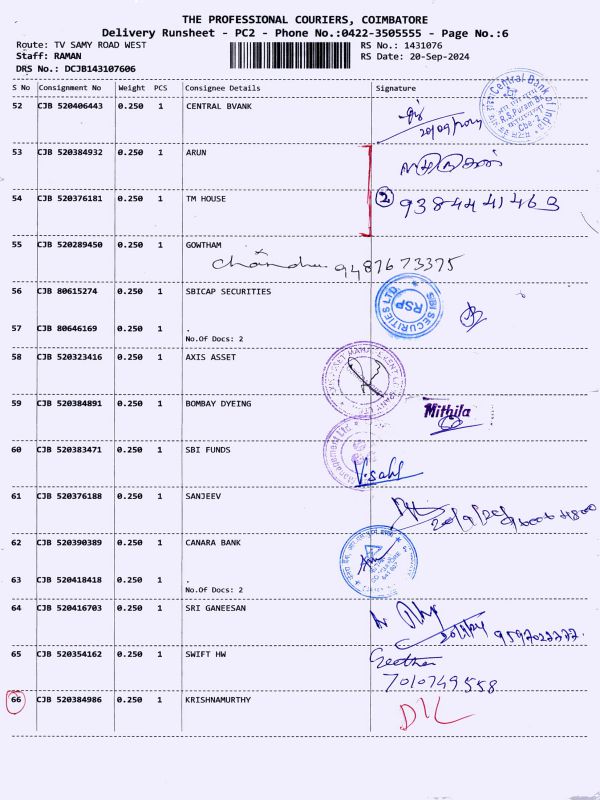 THE PROFESSIONAL COURIERS, COIMBATORE
Delivery Runsheet - PC2 - Phone No.:0422-3505555 - Page No.:6
Route: TV SAMY ROAD WEST RS No.: 1431076
Staff: RAMAN RS Date: 20-Sep-2024
DRS No.: DCJB143107606
S No Consignment No Weight PCS Consignee Details Signature
52 CJB 520406443 0.250 1 CENTRAL BVANK
Central Bank of India
R.S. Puram Br.
Cbe-2
53 CJB 520384932 0.250 1 ARUN
54 CJB 520376181 0.250 1 TM HOUSE
2 9384441463
55 CJB 520289450 0.250 1 GOWTHAM
Chandru 9487673375
56 CJB 80615274 0.250 1 SBICAP SECURITIES
SBI SECURITIES LTD.
RSP
57 CJB 80646169 0.250 1 .
No.Of Docs: 2
58 CJB 520323416 0.250 1 AXIS ASSET
59 CJB 520384891 0.250 1 BOMBAY DYEING
Mithila
60 CJB 520383471 0.250 1 SBI FUNDS
Management Ltd
61 CJB 520376188 0.250 1 SANJEEV
62 CJB 520390389 0.250 1 CANARA BANK
63 CJB 520418418 0.250 1 .
No.Of Docs: 2
64 CJB 520416703 0.250 1 SRI GANEESAN
9597022777.
65 CJB 520354162 0.250 1 SWIFT HW
Geetha
7010749558
66 CJB 520384986 0.250 1 KRISHNAMURTHY
D/L